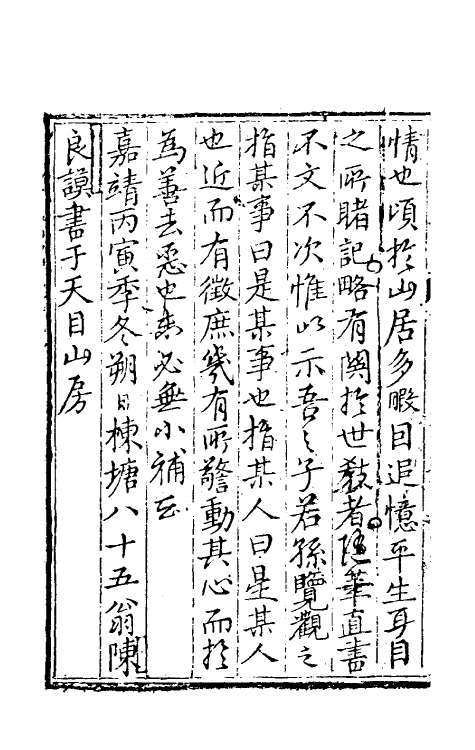 情也頃於山居多暇因追憶平生耳目
之所睹記略有關於世教者随筆直書
不文不次惟以示吾之子若孫覽觀之
指某事曰是某事也指某人曰是某人
也近而有徵庶幾有所警動其心而於
為善去惡也未必無小補云
嘉靖丙寅季冬朔日棟塘八十五翁陳
良謨書于天目山房